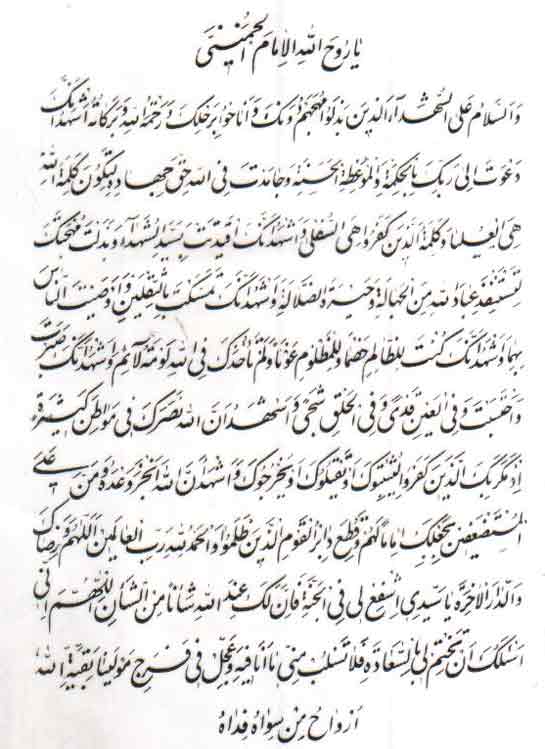 یا روح الله الامام الخمینی
والسلام علی الشهداء الذین بذلوا مهجهم دونک و اناخوا برحلک و رحمة الله و برکاته اشهد انک
دعوت الی ربک بالحکمة و الموعظة الحسنة و جاهدت فی الله حق جهاده لتکون کلمة الله
هی العلیا و کلمة الذین کفروا هی السفلی و اشهد انک اقتدیت بسید الشهداء و بذلت مهجتک
لتستنقذ عباد الله من الجهالة و حیرة الضلالة و اشهد انک تمسکت بالثقلین و اوصیت الناس
بهما و اشهد انک کنت للظالم خصما و للمظلوم عونا و لم تأخذک فی الله لومة لائم و اشهد انک صبرت
و احتسبت و فی العین قذی و فی الحلق شجی و اشهد ان الله نصرک فی مواطن کثیرة
اذ مکر بک الذین کفروا لیثبتوک او یقتلوک او یخرجوک و اشهد ان الله انجز وعده و من علی
المستضعفین بجعلک اماما لهم و قطع دابر القوم الذین ظلموا و الحمد لله رب العالمین اللهم و رضاک
والدار الاخرة یا سیدی اشفع لی فی الجنة فان لک عند الله شانا من الشان اللهم انی
اسئلک ان تختم لی بالسعادة فلا تسلب منی ما انا فیه و عجل فی فرج مولینا بقیة الله
ارواح من سواه فداه